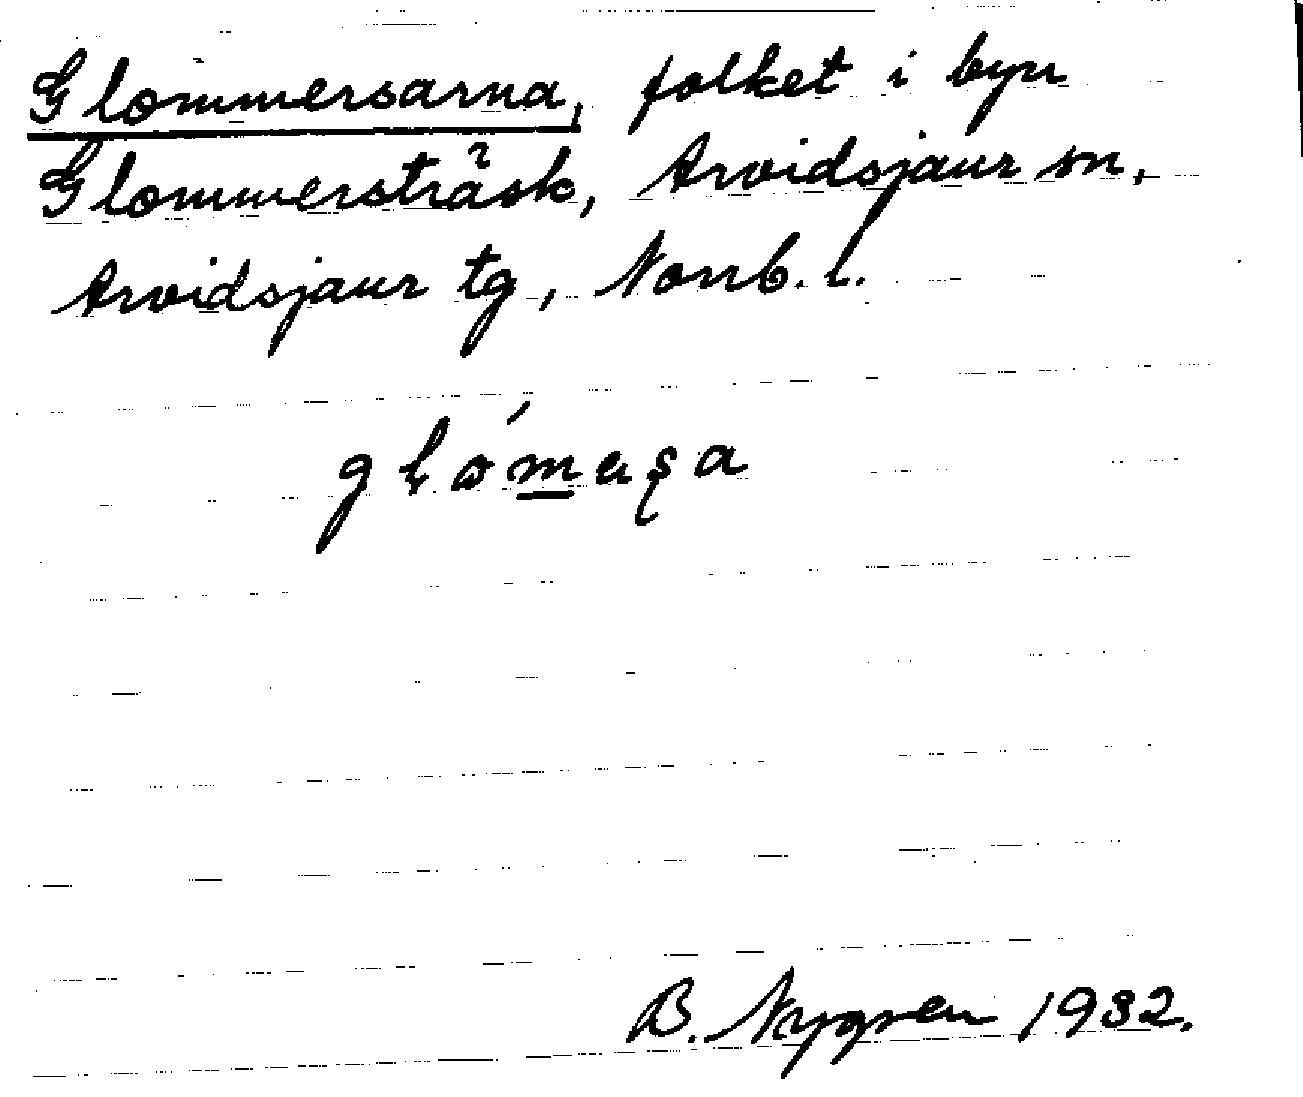 Glommersarna, folket i byn
Glommersträsk, Arvidsjaur sn,
Arvidsjaur tg, Norrb. l.
B. Nygren 1932.